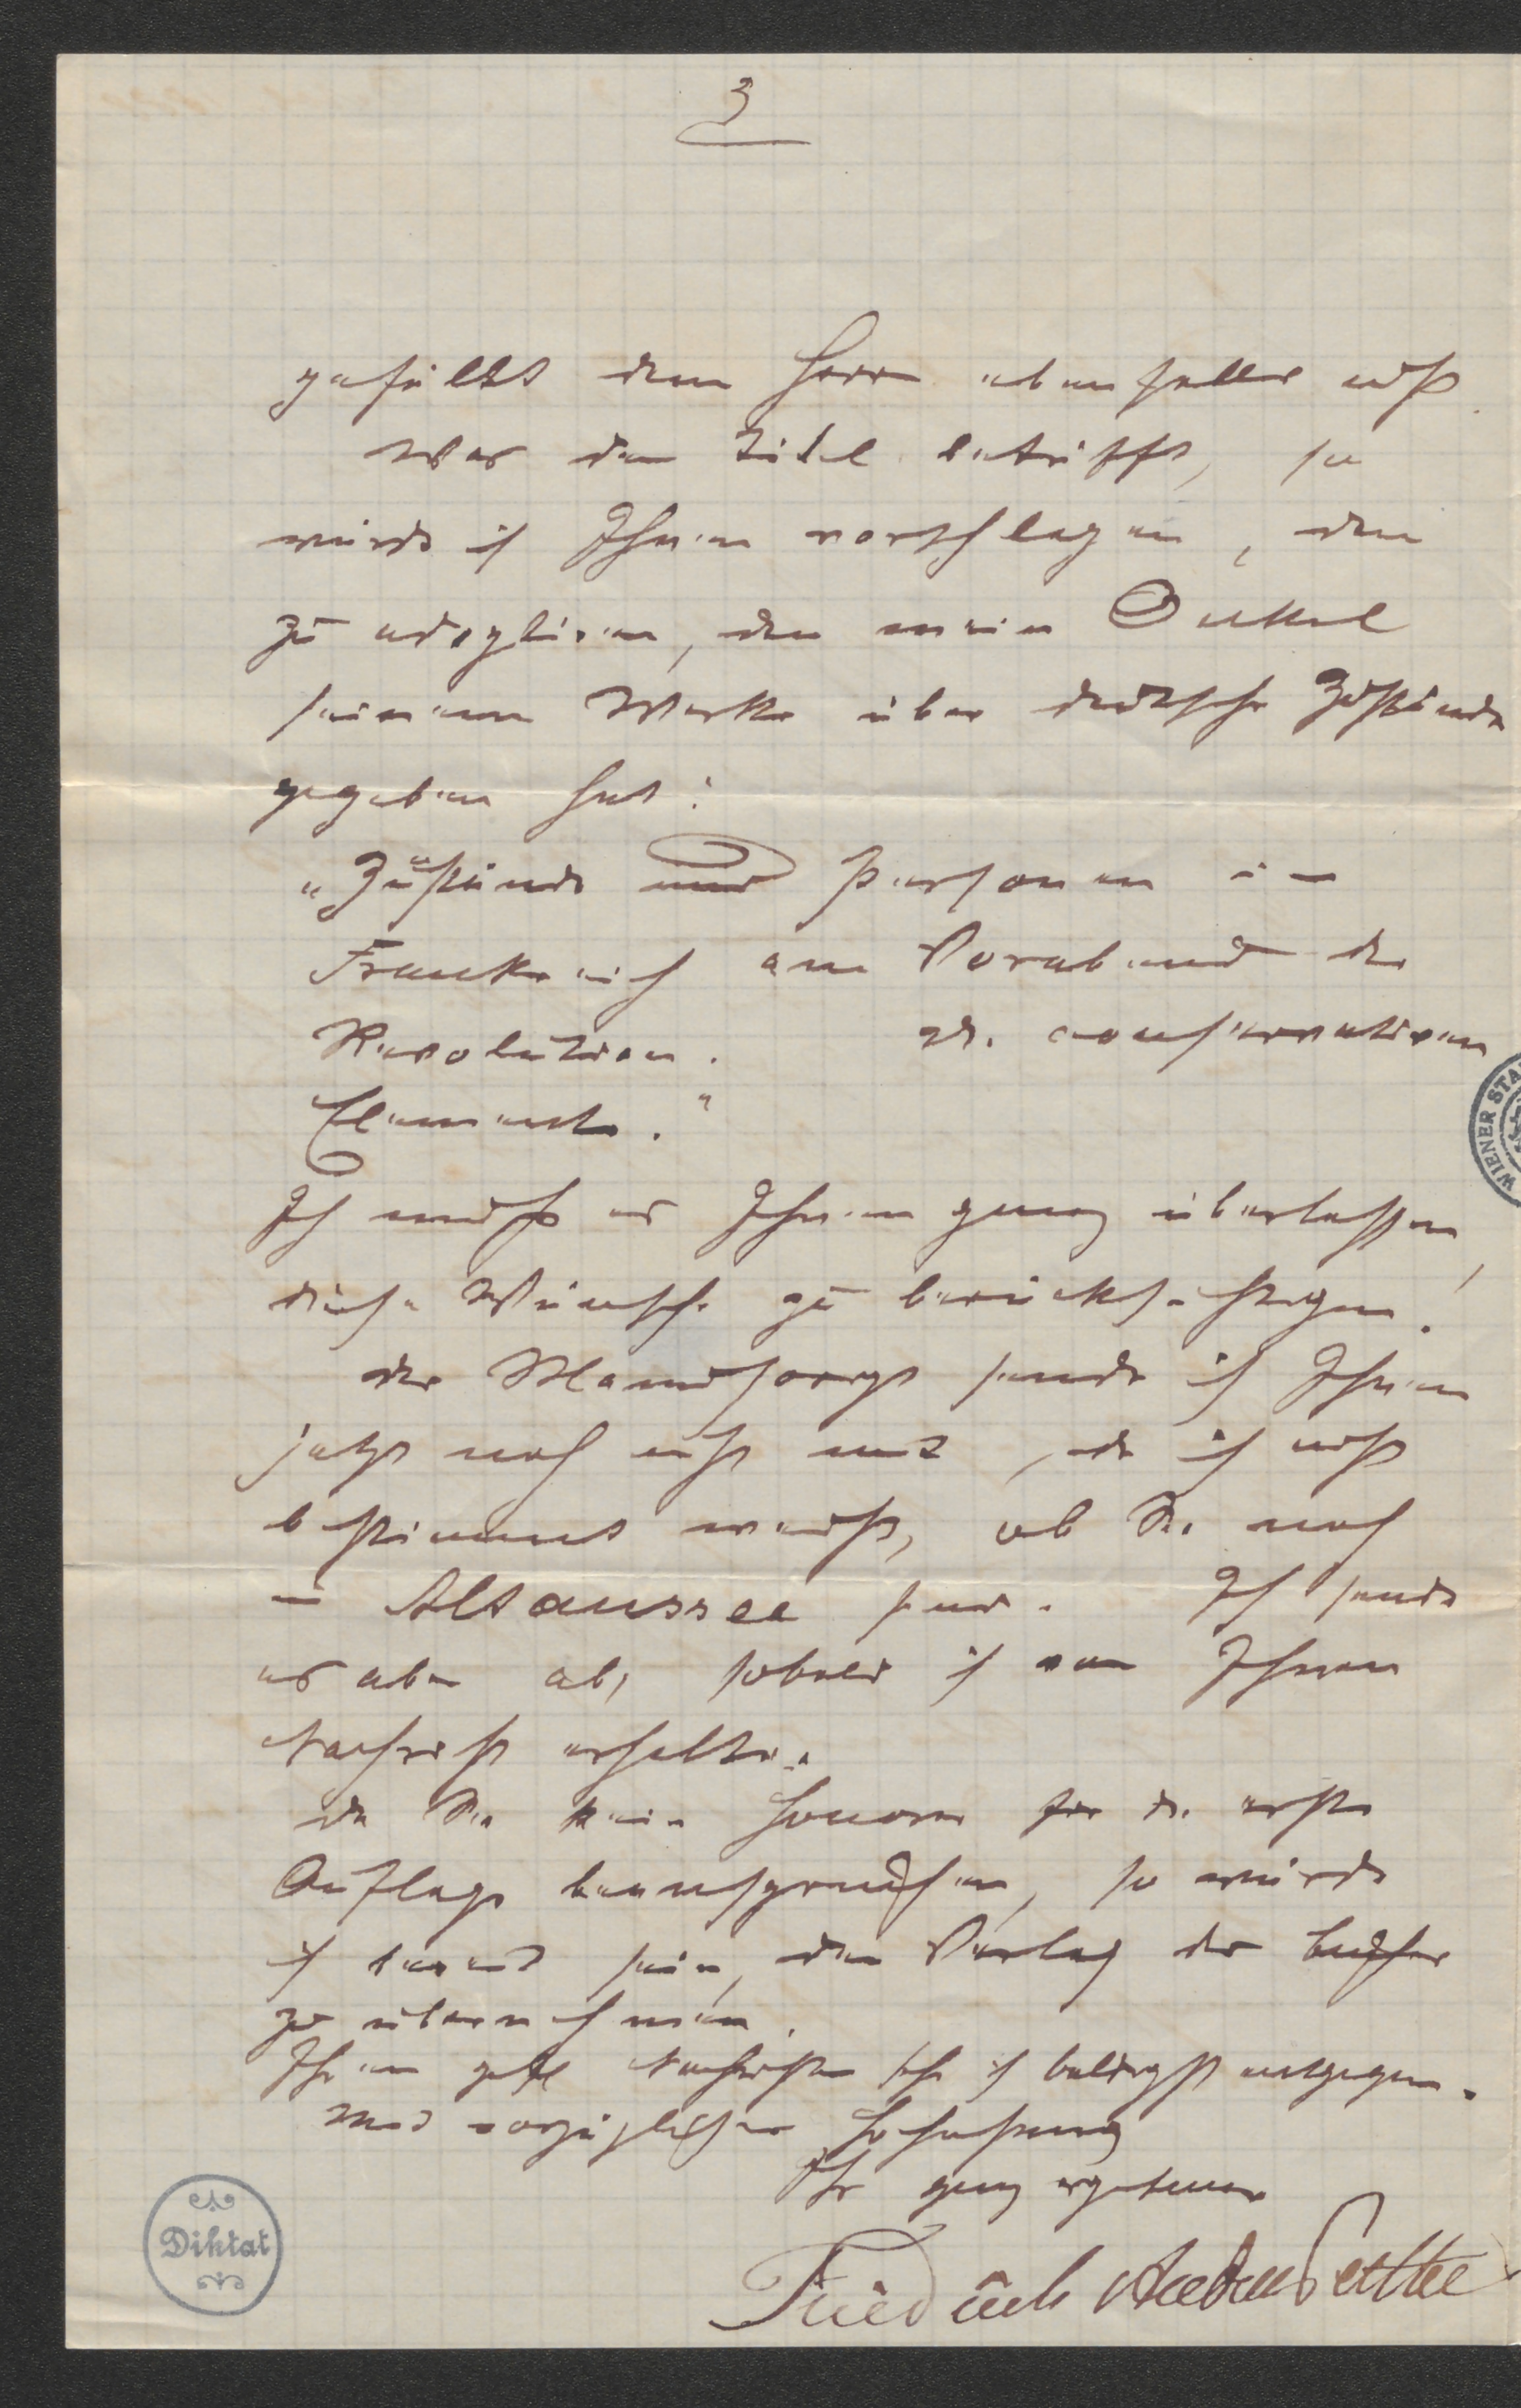 3
gefällt dem Herrn ebenfalls nicht.
Was den Titel betrifft, so
würde ich Ihnen vorschlagen, den
zu adoptieren, den mein Onkel
seinem Werke über deutsche Zustände
gegeben hat:
„Zustände und Personen in
Frankreich am Vorabend der
Revolution. Die conservativen
Elemente."
Ich muß es Ihnen ganz überlassen,
diese Wünsche zu berücksichtigen!
Das sende ich Ihnen
jetzt noch nicht mit, da ich nicht
bestimmt weiß, ob Sie noch
in Altaussee sind. Ich sende
es aber ab, sobald ich von Ihnen
Nachricht erhalte.
Da Sie kein Honorar für die erste
Auflage beanspruchen, so würde
ich bereit sein, den Verlag des Buches
zu übernehmen.
Ihren gefl Nachrichten sehe ich baldigst entgegen.
Mit vorzüglicher Hochachtung
Ihr ganz ergebener
Friedrich Andreas Perthes
Diktat
WIENER STA